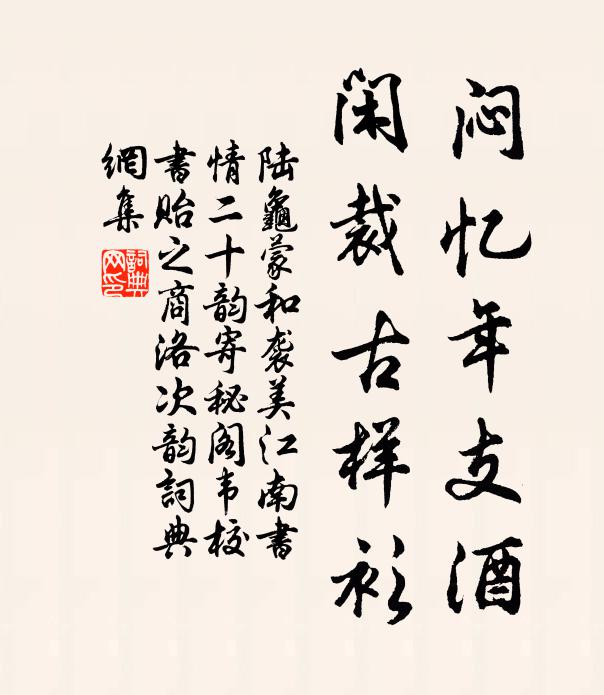 闷忆年支酒
闲裁古样衫
陆龜蒙和袭美江南書
情二十韵寄秘阁韦校
書贻之商洛次韵詞典
網集
詞典
网印